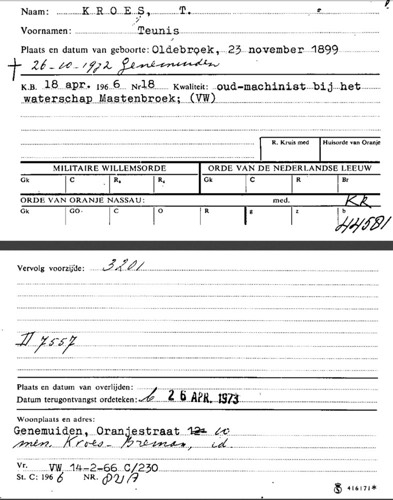 Naam: KROES, T.
Voornamen: Teunis
Plaats en datum van geboorte: Oldebroek, 23 november 1899
† 26-10-1972 Genemuiden
K.B. 18 apr. 1966 Nr 18 Kwaliteit: oud-machinist bij het
waterschap Mastenbroek; (VW)
R. Kruis med Huisorde van Oranje
MILITAIRE WILLEMSORDE ORDE VAN DE NEDERLANDSE LEEUW
Gk C R₁ R₂ Gk C R Br
ORDE VAN ORANJE NASSAU: med. KR
Gk GO C O R g z b
44581
Vervolg voorzijde: 3201
II 7557
Plaats en datum van overlijden:
Datum terugontvangst ordeteken: 26 APR. 1973
Woonplaats en adres:
Genemuiden, Oranjestraat 12 10
men. Kroes-Breman, id.
Vr. VW 14-2-66 C/230
St. C: 1966 NR.
416171*